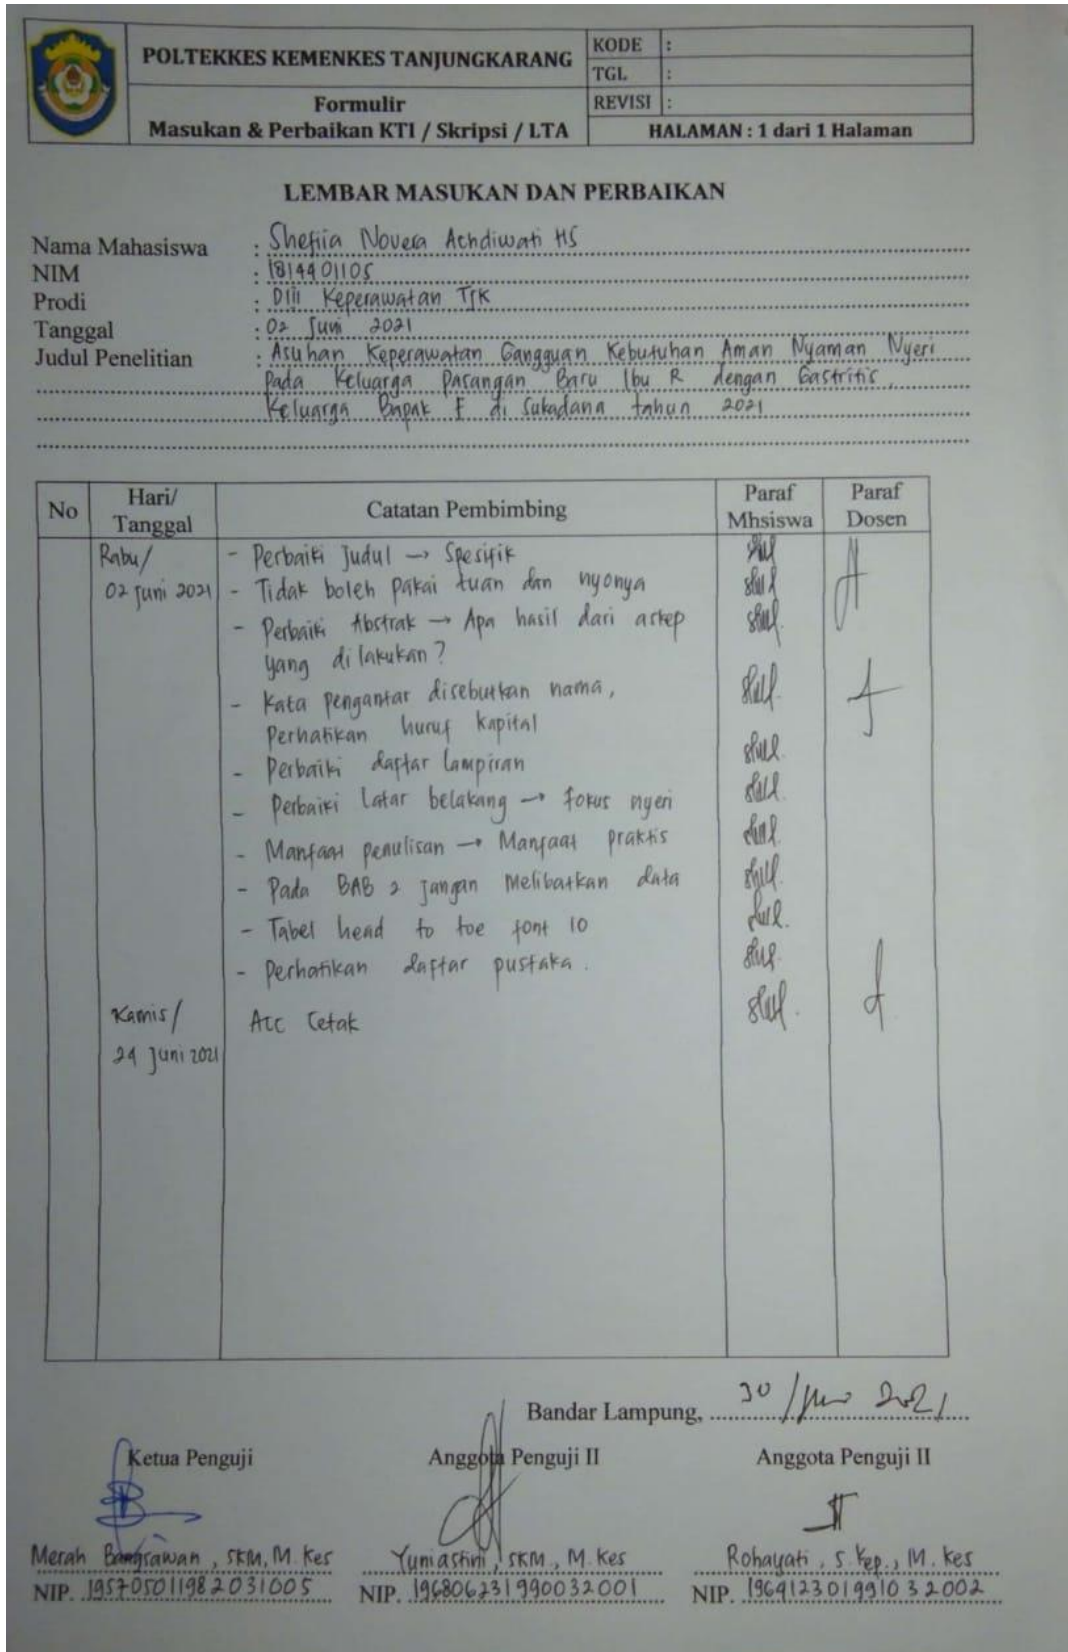 POLTEKKES KEMENKES TANJUNGKARANG
KODE :
TGL :
Formulir
Masukan & Perbaikan KTI / Skripsi / LTA
REVISI :
HALAMAN : 1 dari 1 Halaman
LEMBAR MASUKAN DAN PERBAIKAN
Nama Mahasiswa : Shefiia Novera Achdiwati HS
NIM : 1814401105
Prodi : DIII Keperawatan TJK
Tanggal : 02 Juni 2021
Judul Penelitian : Asuhan Keperawatan Gangguan Kebutuhan Aman Nyaman Nyeri
Pada Keluarga Pasangan Baru Ibu R dengan Gastritis,
Keluarga Bapak F di Sukadana tahun 2021
No Hari/ Tanggal Catatan Pembimbing Paraf Mhsiswa Paraf Dosen
Rabu/ - Perbaiki Judul → Spesifik
02 Juni 2021 - Tidak boleh pakai tuan dan nyonya
- Perbaiki Abstrak → Apa hasil dari askep
yang di lakukan?
- Kata pengantar disebutkan nama,
Perhatikan huruf kapital
- Perbaiki daftar lampiran
- Perbaiki Latar belakang → fokus nyeri
- Manfaat penulisan → Manfaat praktis
- Pada BAB 2 jangan Melibatkan data
- Tabel head to toe font 10
- Perhatikan daftar pustaka.
Kamis/ Acc Cetak
24 Juni 2021
Bandar Lampung, 30 / 2021
Ketua Penguji Anggota Penguji II Anggota Penguji II
Merah Bangsawan, SKM, M. Kes Yuniastini, SKM., M. Kes Rohayati, S. Kep., M. Kes
NIP. 195705011982031005 NIP. 196806231990032001 NIP. 196912301991032002